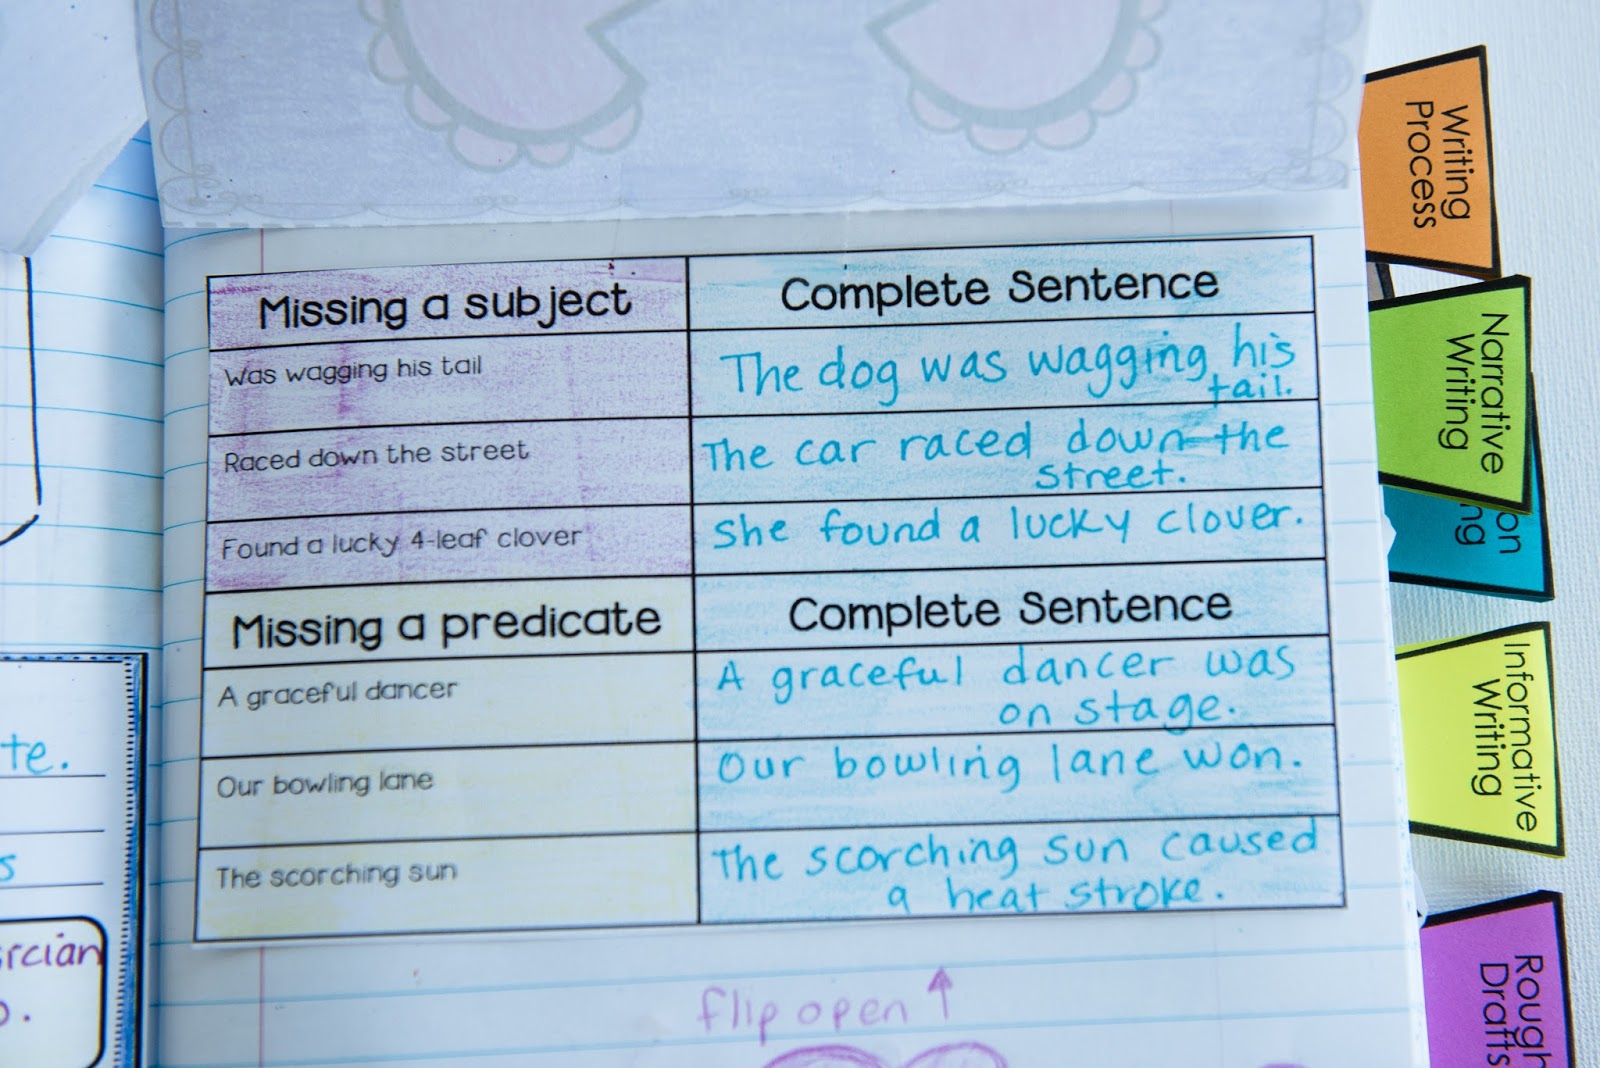 Missing a subject
Complete Sentence
Was wagging his tail
The dog was wagging his
tail.
Raced down the street
The car raced down the
street.
Found a lucky 4-leaf clover
She found a lucky clover.
Missing a predicate
Complete Sentence
A graceful dancer
A graceful dancer was
on stage.
Our bowling lane
Our bowling lane won.
The scorching sun
The scorching sun caused
a heat stroke.
flip open
Writing
Process
Narrative
Writing
Informative
Writing
Rough
Drafts